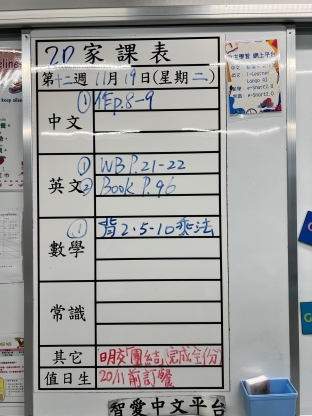 2D 家課表
第十二週 11月19日(星期二)
中文 ① 作P.8-9
英文 ① WB P.21-22
② Book P.96
數學 ① 背2、5、10乘法
常識
其它 明交「團結」完成全(份)
值日生 20/11前訂餐
智愛中文平台
自主學習網上平台